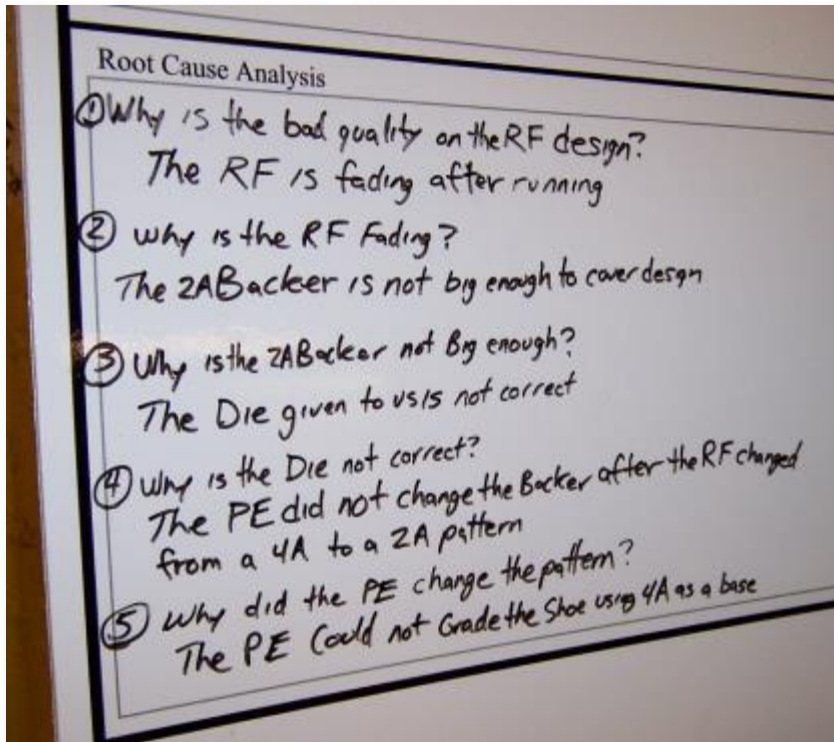 Root Cause Analysis
① Why is the bad quality on the RF design?
The RF is fading after running
② Why is the RF Fading?
The 2A Backer is not big enough to cover design
③ Why is the 2A Backer not Big enough?
The Die given to us is not correct
④ Why is the Die not correct?
The PE did not change the Backer after the RF changed
from a 4A to a 2A pattern
⑤ Why did the PE change the pattern?
The PE Could not Grade the Shoe using 4A as a base